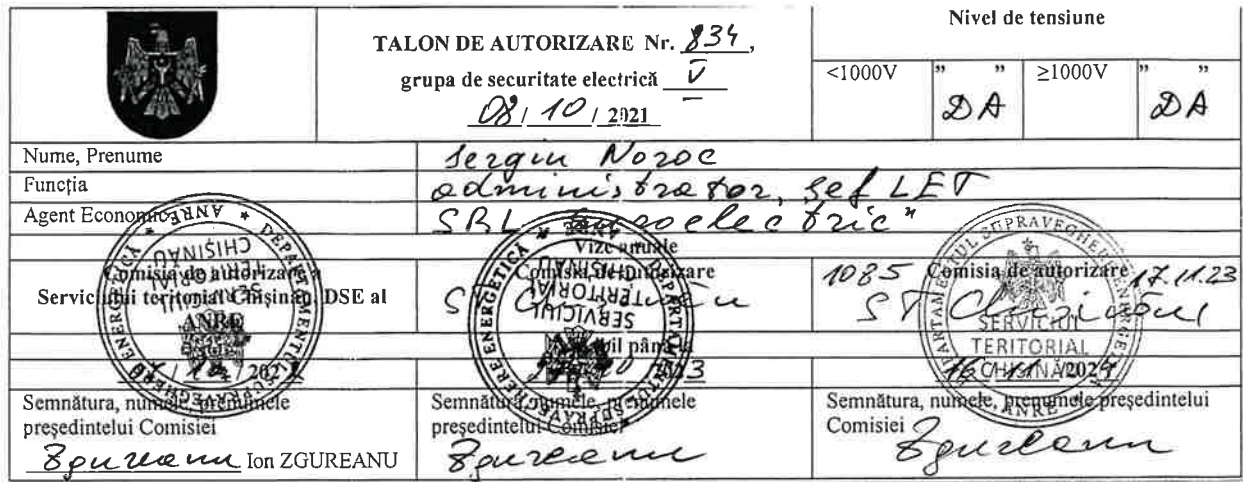 TALON DE AUTORIZARE Nr. 834,
grupa de securitate electrică V
08 / 10 / 2021
Nivel de tensiune
<1000V "DA" ≥1000V "DA"
Nume, Prenume Sergiu Noroc
Funcția administrator, șef LET
Agent Economic SRL "Euroelectric"
Vize anuale
Comisia de autorizare a
Serviciului teritorial Chișinău, DSE al
ANRE
Comisia de autorizare
ST Chișinău
1085 Comisia de autorizare 17.11.23
ST Chișinău
Valabil până la
16 / 11 / 2024
Semnătura, numele, prenumele
președintelui Comisiei
Zgureanu Ion ZGUREANU
Semnătura, numele, prenumele
președintelui Comisiei
Zgureanu
Semnătura, numele, prenumele președintelui
Comisiei Zgureanu
DEPARTAMENTUL SUPRAVEGHERE ENERGETICĂ * ANRE *
SERVICIUL
TERITORIAL
CHIȘINĂU
DEPARTAMENTUL SUPRAVEGHERE ENERGETICĂ * ANRE *
SERVICIUL
TERITORIAL
CHIȘINĂU
DEPARTAMENTUL SUPRAVEGHERE ENERGETICĂ * ANRE *
SERVICIUL
TERITORIAL
CHIȘINĂU